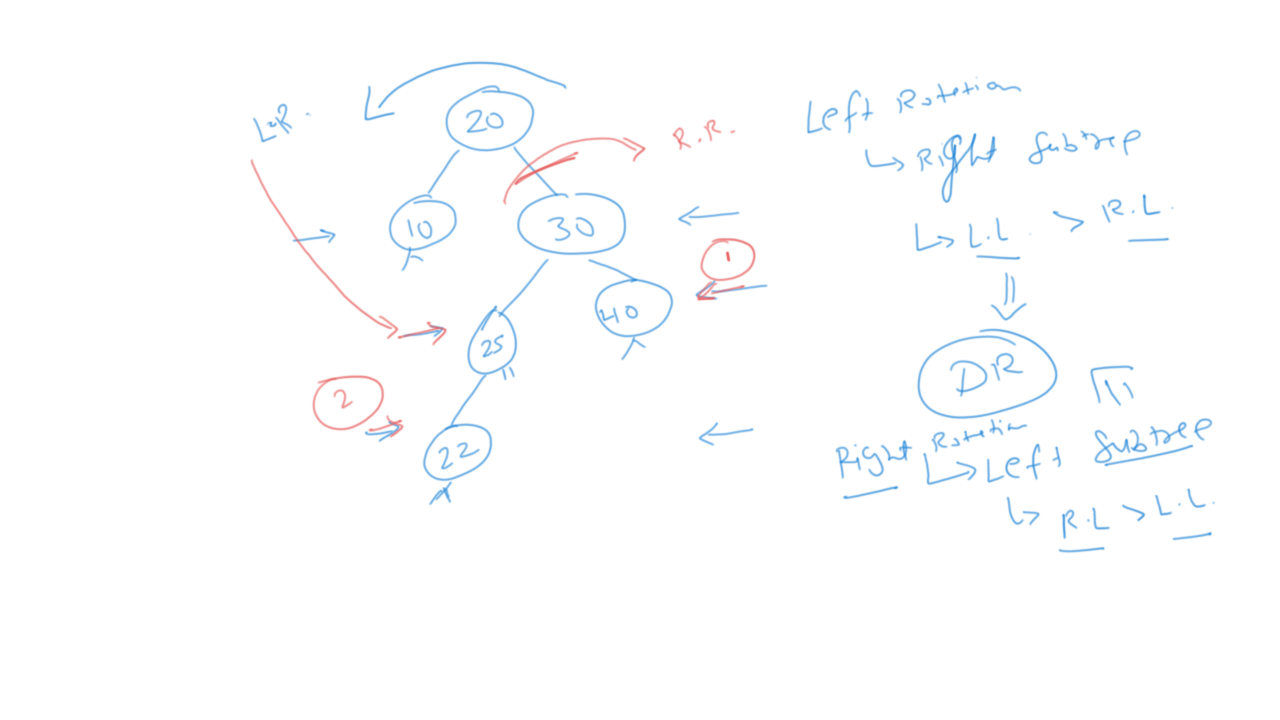 20
L.R.
R.R.
10
30
1
40
25
2
22
Left Rotation
Right Subtree
L.L. > R.L.
DR
Right Rotation
Left Subtree
R.L > L.L.